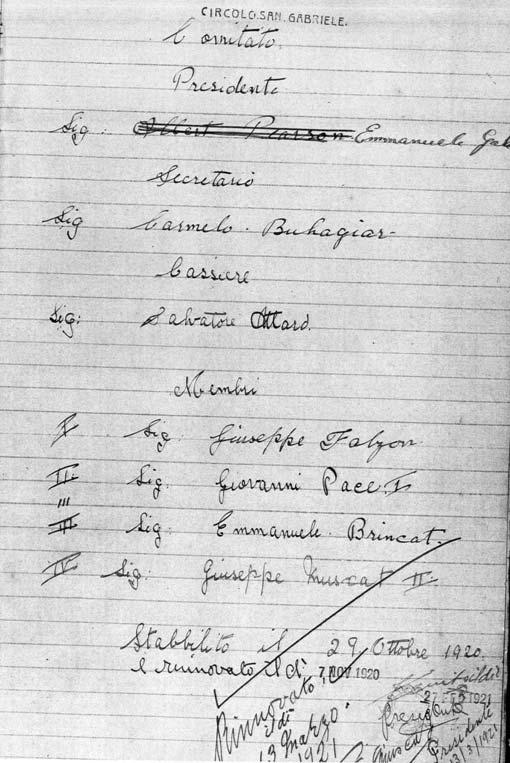 CIRCOLO.SAN. GABRIELE.
Comitato.
Presidente
Sig: Albert Pearson Emmanuele
Secretario
Sig Carmelo. Buhagiar
Cassiere
Sig: Salvatore Attard.
Membri
I Sig. Giuseppe Falzon
II. Sig. Giovanni Pace I.
III Sig. Emmanuele. Brincat.
IV Sig. Giuseppe Muscat II.
Stabbilito il 29 Ottobre 1920.
e rinnovato il dì 7 NOV 1920
Rinnovato
il dì
13 Marzo.
1921
1921
Presidente
13/3/1921